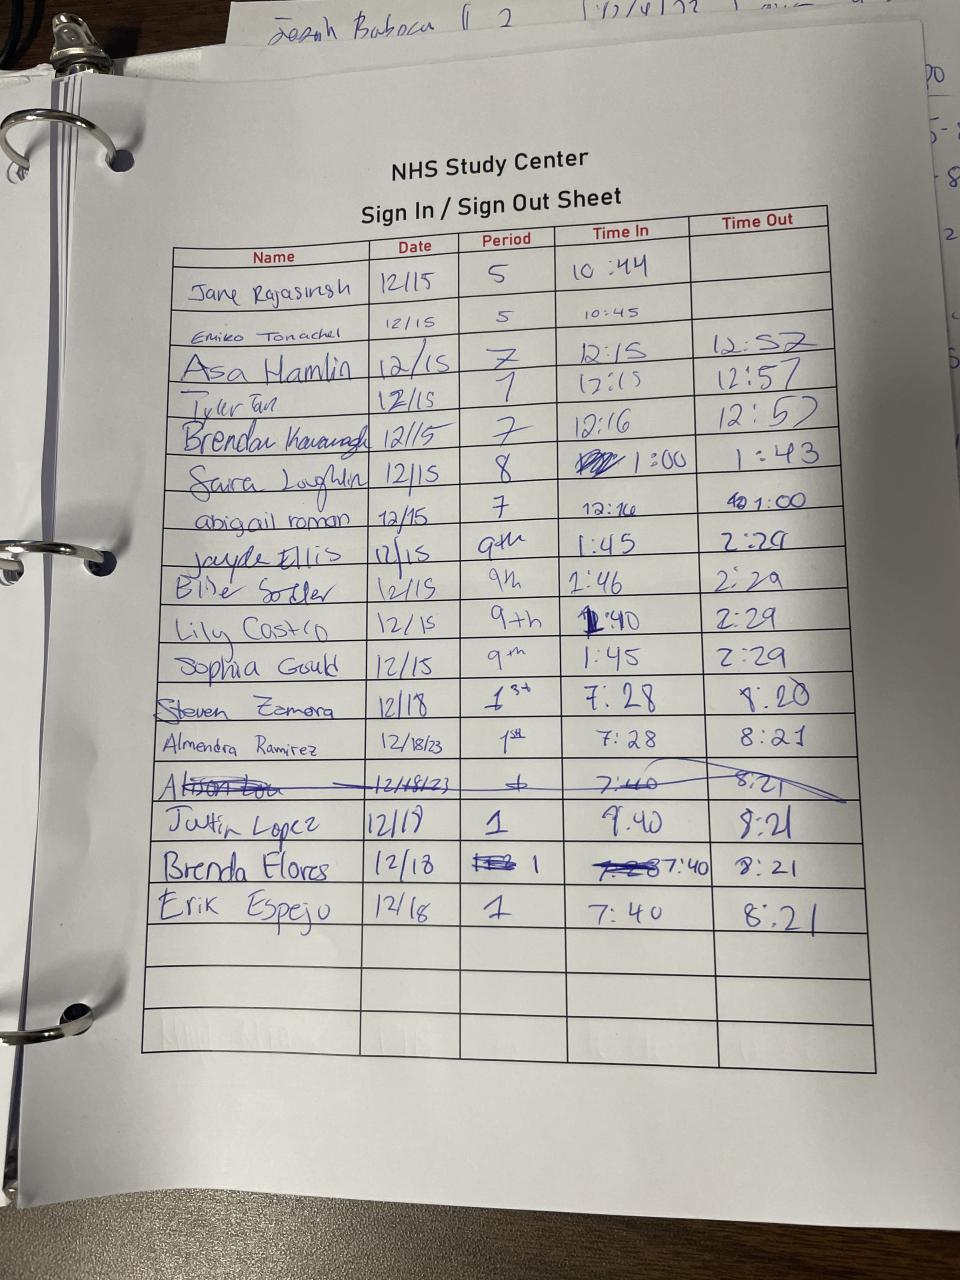 Josh Baboca 2 12/4/22
NHS Study Center
Sign In / Sign Out Sheet
Name Date Period Time In Time Out
Jane Rajasingh 12/15 5 10:44
Emiko Tonachel 12/15 5 10:45
Asa Hamlin 12/15 7 12:15 12:57
Tyler Tan 12/15 7 12:15 12:57
Brendan Kavanagh 12/15 7 12:16 12:57
Saira Loughlin 12/15 8 1:00 1:43
abigail roman 12/15 7 12:16 1:00
Jayde Ellis 12/15 9th 1:45 2:29
12/15 9th 1:46 2:29
Lily Castro 12/15 9th 1:40 2:29
Sophia Gould 12/15 9th 1:45 2:29
Steven Zamora 12/18 1st 7:28 8:20
Almendra Ramirez 12/18/23 1st 7:28 8:21
12/18/23 1 7:40 8:21
Justin Lopez 12/18 1 7:40 8:21
Brenda Flores 12/18 1 7:40 8:21
Erik Espejo 12/18 1 7:40 8:21